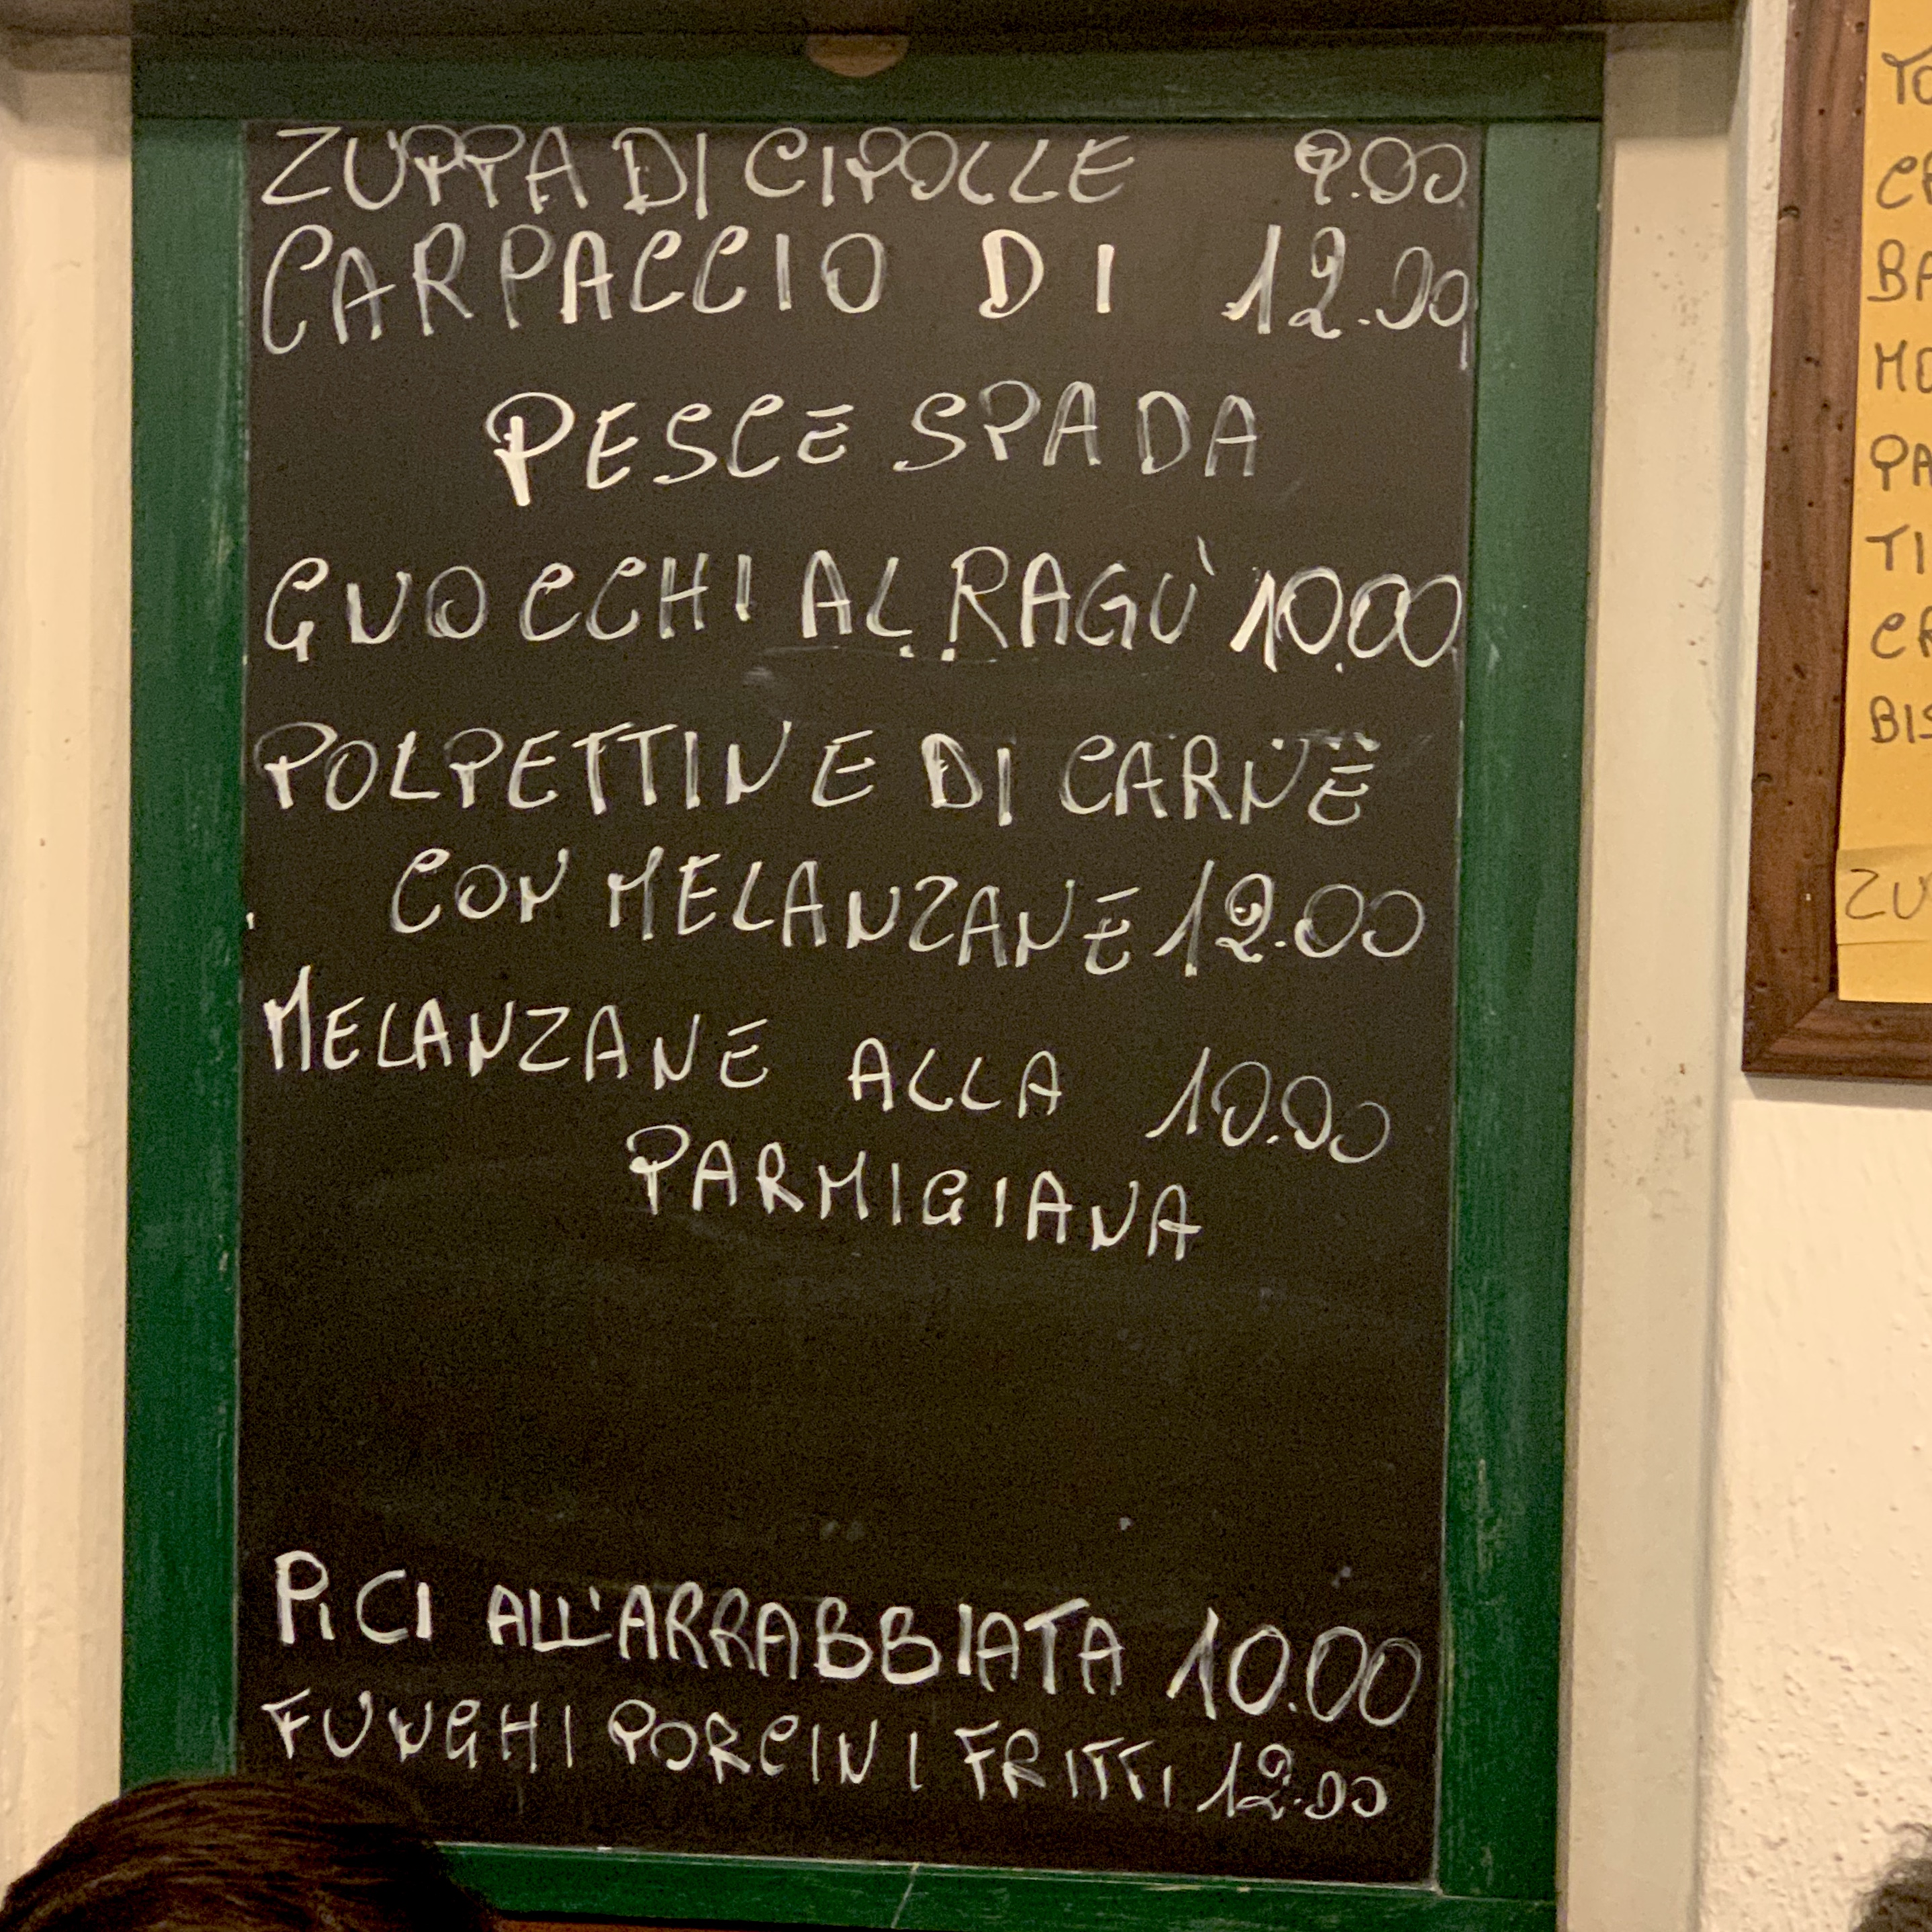 ZUPPA DI CIPOLLE 9.00
CARPACCIO DI 12.00
PESCE SPADA
GNOCCHI AL RAGÙ 10.00
POLPETTINE DI CARNE
CON MELANZANE 12.00
MELANZANE ALLA 10.00
PARMIGIANA
PICI ALL'ARRABBIATA 10.00
FUNGHI PORCINI FRITTI 12.00